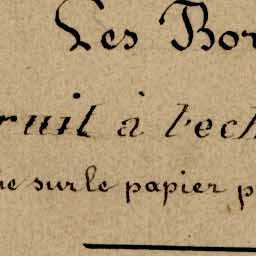 Les Bor
ruil à l'ech
ne sur le papier p